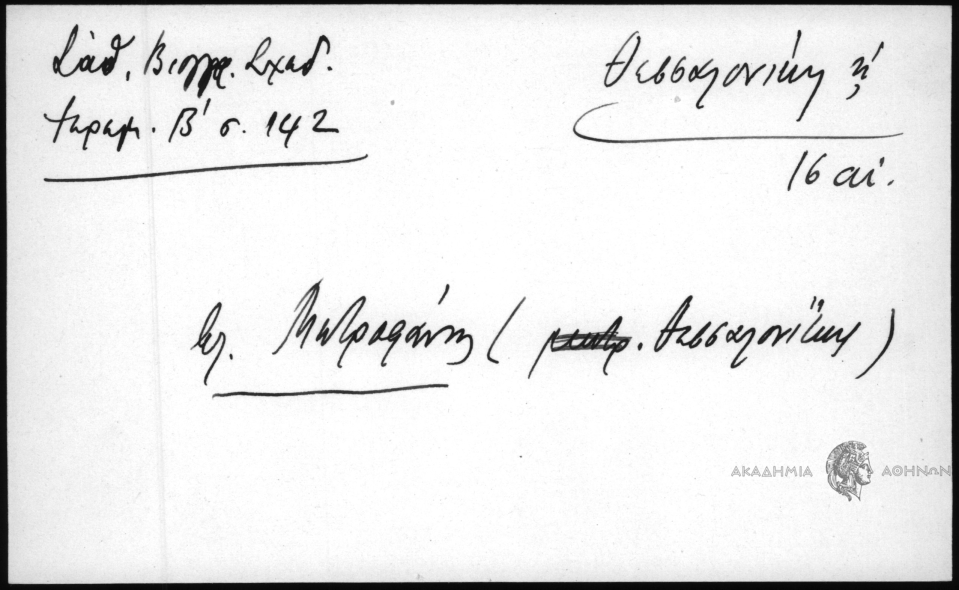 Σάθ. Βιογρ. Σχεδ.
παραρ. Β' σ. 142
Θεσσαλονίκη ἡ
16 αἰ.
Μητροφάνης ( μητρ. Θεσσαλονίκης )
ΑΚΑΔΗΜΙΑ ΑΘΗΝΩΝ